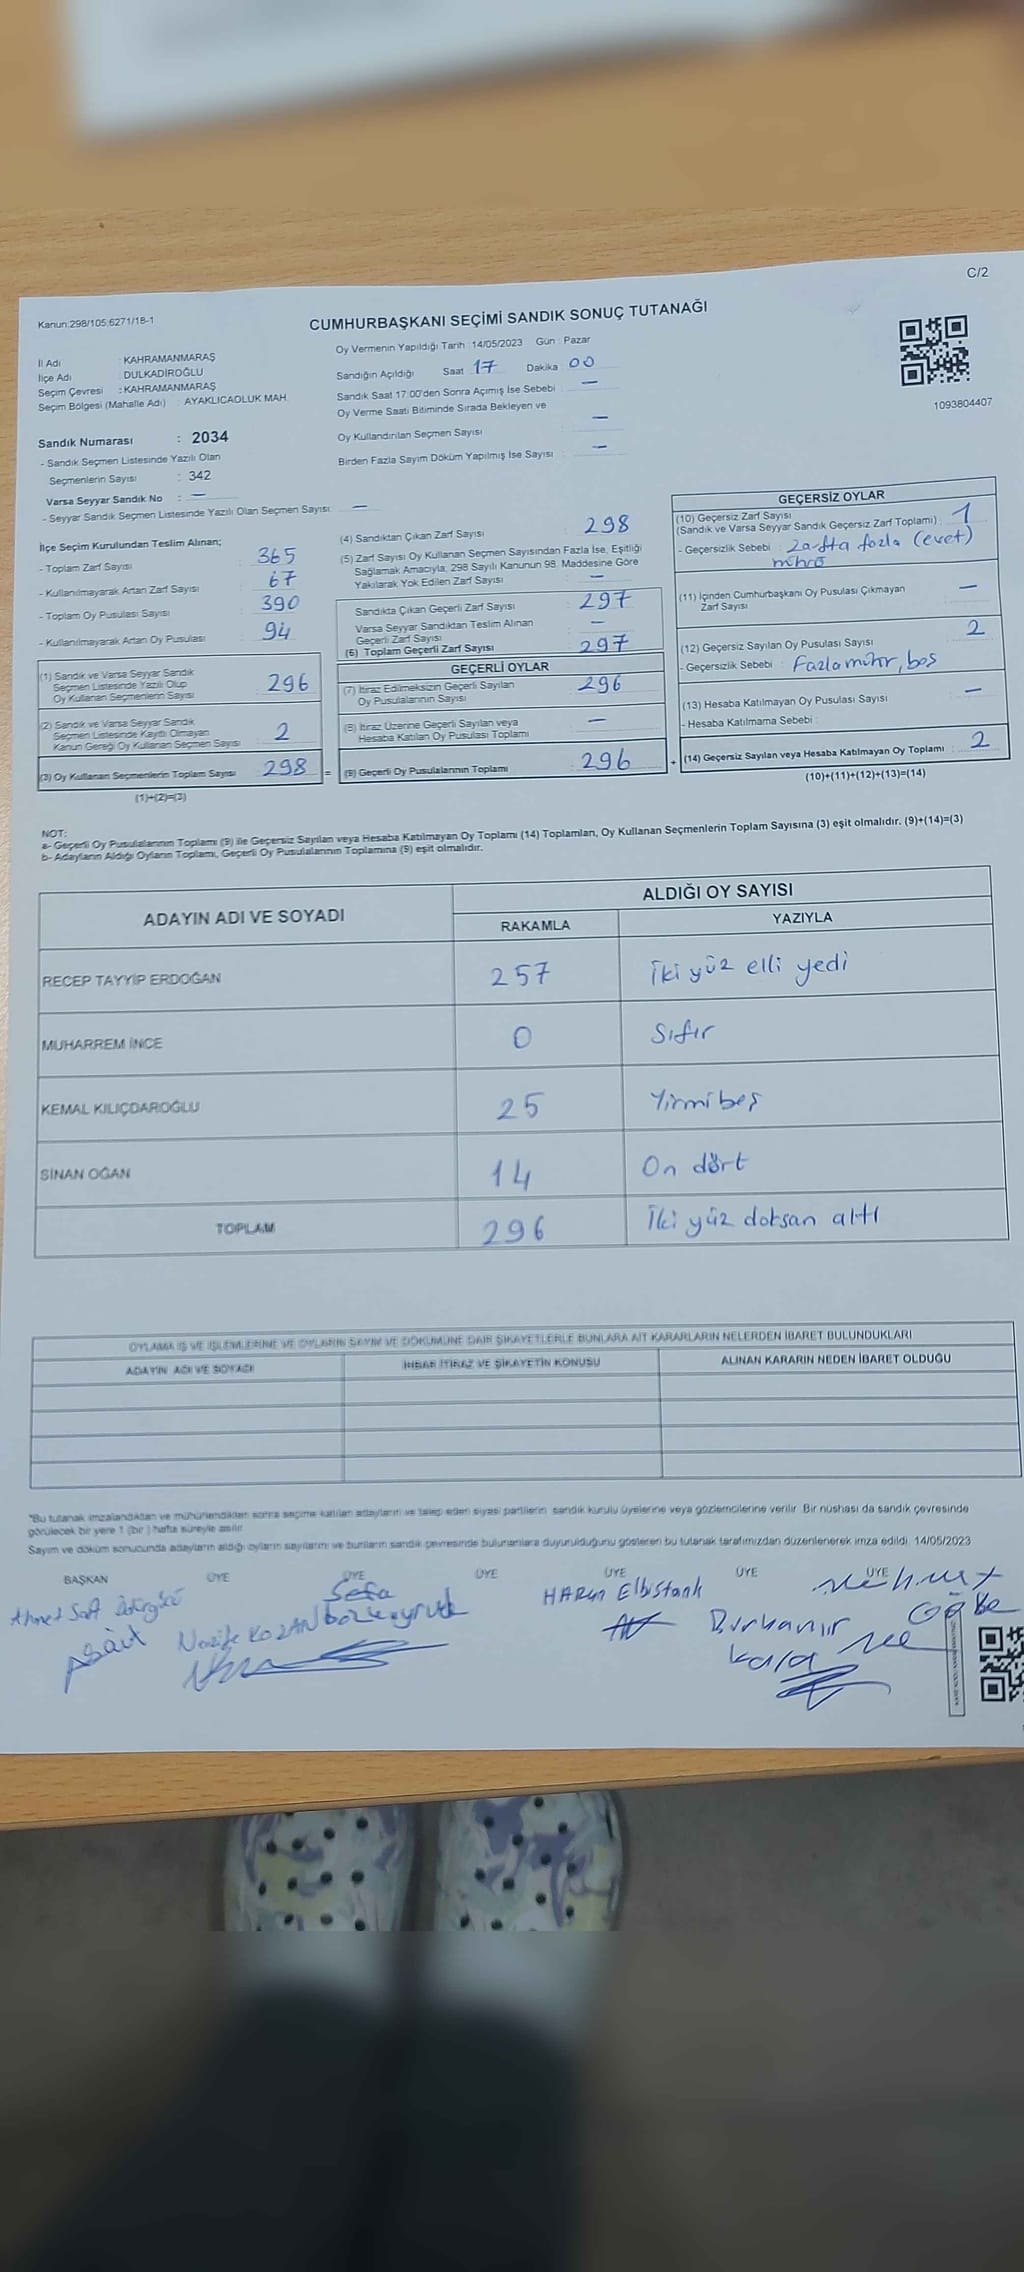 C/2
Kanun:298/105;6271/18-1
CUMHURBAŞKANI SEÇİMİ SANDIK SONUÇ TUTANAĞI
İl Adı : KAHRAMANMARAŞ
İlçe Adı : DULKADİROĞLU
Seçim Çevresi : KAHRAMANMARAŞ
Seçim Bölgesi (Mahalle Adı) : AYAKLICAOLUK MAH.
Sandık Numarası : 2034
- Sandık Seçmen Listesinde Yazılı Olan
Seçmenlerin Sayısı : 342
Varsa Seyyar Sandık No : —
- Seyyar Sandık Seçmen Listesinde Yazılı Olan Seçmen Sayısı: —
Oy Vermenin Yapıldığı Tarih :14/05/2023 Gün : Pazar
Sandığın Açıldığı Saat 17 Dakika 00
Sandık Saat 17:00'den Sonra Açılmış İse Sebebi : —
Oy Verme Saati Bitiminde Sırada Bekleyen ve
Oy Kullandırılan Seçmen Sayısı : —
Birden Fazla Sayım Döküm Yapılmış İse Sayısı : —
1093804407
İlçe Seçim Kurulundan Teslim Alınan;
- Toplam Zarf Sayısı : 365
- Kullanılmayarak Artan Zarf Sayısı : 67
- Toplam Oy Pusulası Sayısı : 390
- Kullanılmayarak Artan Oy Pusulası : 94
(1) Sandık ve Varsa Seyyar Sandık
Seçmen Listesinde Yazılı Olup
Oy Kullanan Seçmenlerin Sayısı : 296
(2) Sandık ve Varsa Seyyar Sandık
Seçmen Listesinde Kayıtlı Olmayan
Kanun Gereği Oy Kullanan Seçmen Sayısı : 2
(3) Oy Kullanan Seçmenlerin Toplam Sayısı : 298
(1)+(2)=(3)
(4) Sandıktan Çıkan Zarf Sayısı : 298
(5) Zarf Sayısı Oy Kullanan Seçmen Sayısından Fazla İse, Eşitliği
Sağlamak Amacıyla, 298 Sayılı Kanunun 98. Maddesine Göre
Yakılarak Yok Edilen Zarf Sayısı : —
Sandıkta Çıkan Geçerli Zarf Sayısı : 297
Varsa Seyyar Sandıktan Teslim Alınan
Geçerli Zarf Sayısı : —
(6) Toplam Geçerli Zarf Sayısı : 297
GEÇERLİ OYLAR
(7) İtiraz Edilmeksizin Geçerli Sayılan
Oy Pusulalarının Sayısı : 296
(8) İtiraz Üzerine Geçerli Sayılan veya
Hesaba Katılan Oy Pusulası Toplamı : —
= (9) Geçerli Oy Pusulalarının Toplamı : 296
GEÇERSİZ OYLAR
(10) Geçersiz Zarf Sayısı
(Sandık ve Varsa Seyyar Sandık Geçersiz Zarf Toplamı) : 1
- Geçersizlik Sebebi : Zarfta fazla (evet)
mührü
(11) İçinden Cumhurbaşkanı Oy Pusulası Çıkmayan
Zarf Sayısı : —
(12) Geçersiz Sayılan Oy Pusulası Sayısı : 2
- Geçersizlik Sebebi : Fazla mühür, boş
(13) Hesaba Katılmayan Oy Pusulası Sayısı : —
- Hesaba Katılmama Sebebi :
+ (14) Geçersiz Sayılan veya Hesaba Katılmayan Oy Toplamı : 2
(10)+(11)+(12)+(13)=(14)
NOT:
a- Geçerli Oy Pusulalarının Toplamı (9) ile Geçersiz Sayılan veya Hesaba Katılmayan Oy Toplamı (14) Toplamları, Oy Kullanan Seçmenlerin Toplam Sayısına (3) eşit olmalıdır. (9)+(14)=(3)
b- Adayların Aldığı Oyların Toplamı, Geçerli Oy Pusulalarının Toplamına (9) eşit olmalıdır.
ADAYIN ADI VE SOYADI
ALDIĞI OY SAYISI
RAKAMLA YAZIYLA
RECEP TAYYİP ERDOĞAN 257 İki yüz elli yedi
MUHARREM İNCE 0 Sıfır
KEMAL KILIÇDAROĞLU 25 Yirmi beş
SİNAN OĞAN 14 On dört
TOPLAM 296 İki yüz doksan altı
OYLAMA İŞ VE İŞLEMLERİNE VE OYLARIN SAYIM VE DÖKÜMÜNE DAİR ŞİKAYETLERLE BUNLARA AİT KARARLARIN NELERDEN İBARET BULUNDUKLARI
ADAYIN ADI VE SOYADI İHBAR İTİRAZ VE ŞİKAYETİN KONUSU ALINAN KARARIN NEDEN İBARET OLDUĞU
*Bu tutanak imzalandıktan ve mühürlendikten sonra seçime katılan adayların ve talep eden siyasi partilerin sandık kurulu üyelerine veya gözlemcilerine verilir. Bir nüshası da sandık çevresinde
görülecek bir yere 1 (bir ) hafta süreyle asılır.
Sayım ve döküm sonucunda adayların aldığı oyların sayılarını ve bunların sandık çevresinde bulunanlara duyurulduğunu gösteren bu tutanak tarafımızdan düzenlenerek imza edildi. 14/05/2023
BAŞKAN ÜYE ÜYE ÜYE ÜYE ÜYE ÜYE
Ahmet Sait
Nazife KOZAN
Sefa
HARun Elbistanlı
Burhanır
Kara
Mehmet
Gökbe